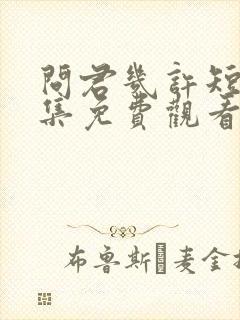 問君幾許短
集免費觀看
布鲁斯麦金